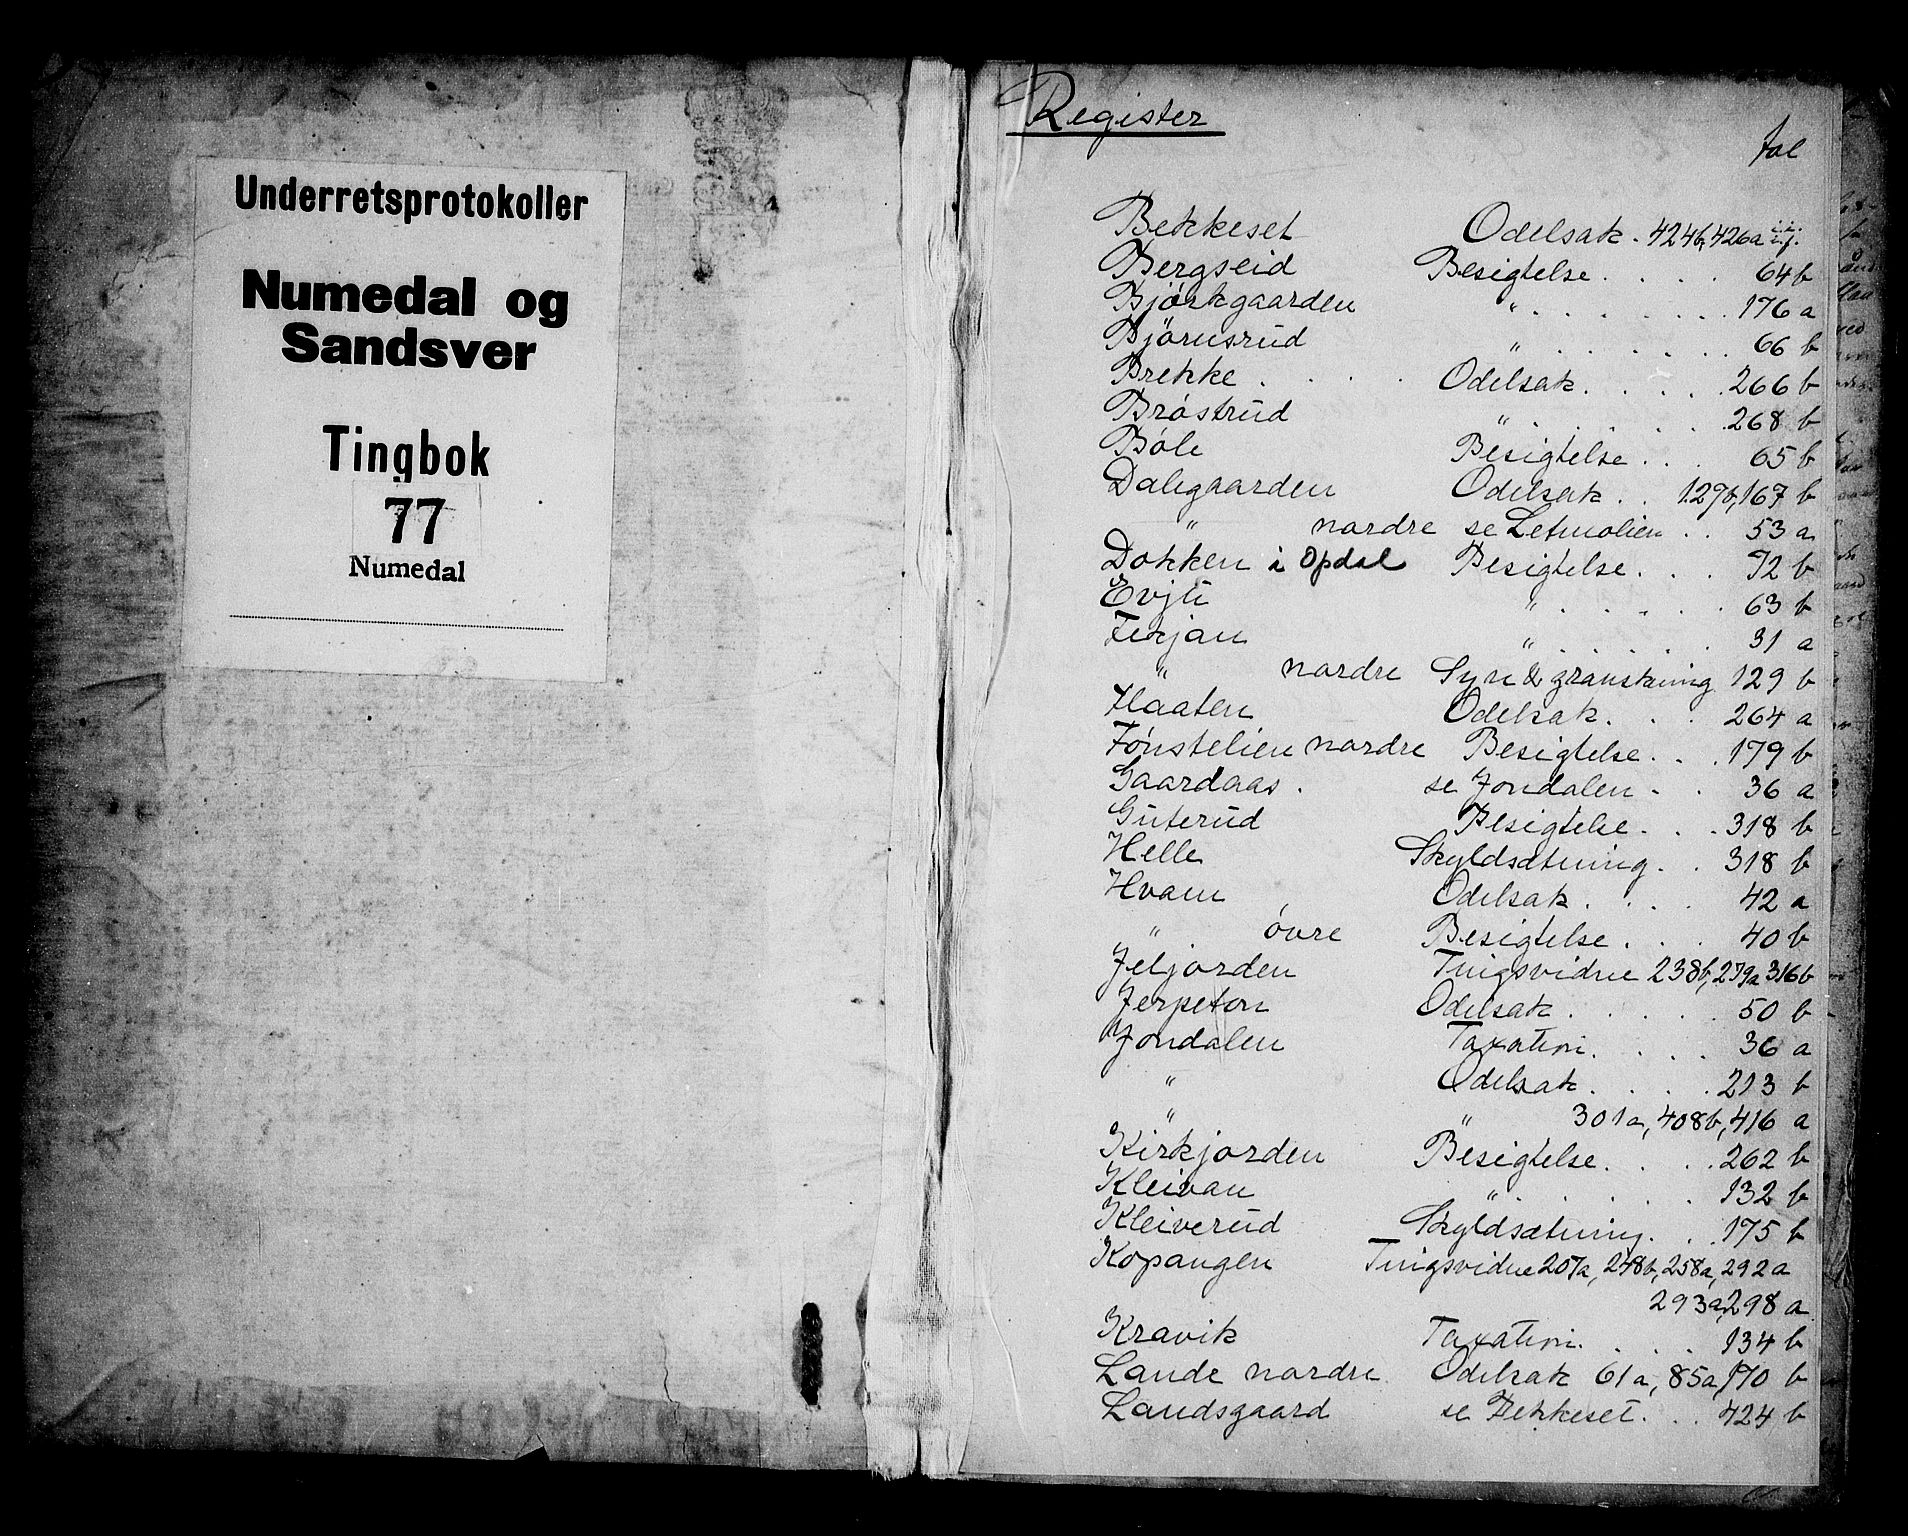 Underretsprotokoller
Numedal og
Sandsver
Tingbok
77
Numedal
Register
fol
Bekkeset Odelsak . 424b, 426a
Bergseid Besigtelse . . . . 64 b
Bjørkgaarden " . . . . . . . 176 a
Bjørnsrud " . . . . . . 66 b
Brekke . . . . Odelsak . . . . . 266 b
Brøstrud " . . . . . . 268 b
Bøle Besigtelse . . . 65 b
Dalegaarden Odelsak . . 129b, 167 b
" nordre se Letmolien . . 53 a
Dokken i Opdal Besigtelse . . . 72 b
Evju " . . . . . 63 b
Fekjan " . . . . . 31 a
" nordre Syn & granskning 129 b
Flaaten Odelsak . . . 264 a
Fønstelien nordre Besigtelse . . . 179 b
Gaardaas . se Jondalen . . 36 a
Guterud Besigtelse . . . 318 b
Helle Skyldsætning . . 318 b
Hvam Odelsak . . . . 42 a
" øvre Besigtelse . . . 40 b
Jeljorden Tingsvidne 238b, 279a 316b
Jerpeton Odelsak . . . . . 50 b
Jondalen Taxation . . . . 36 a
" Odelsak . . . . 213 b
" " 301a, 408b, 416 a
Kirkjorden Besigtelse . . . . 262 b
Kleivan " . . . . . . 132 b
Kleiverud Skyldsætning . . . 175 b
Kopangen Tingsvidne 207a, 248b, 258a, 292a
293a, 298 a
Kravik Taxation . . . . 134 b
Lande nordre Odelsak 61a, 85a, 170 b
Landsgaard se Bekkeset . . . 424 b